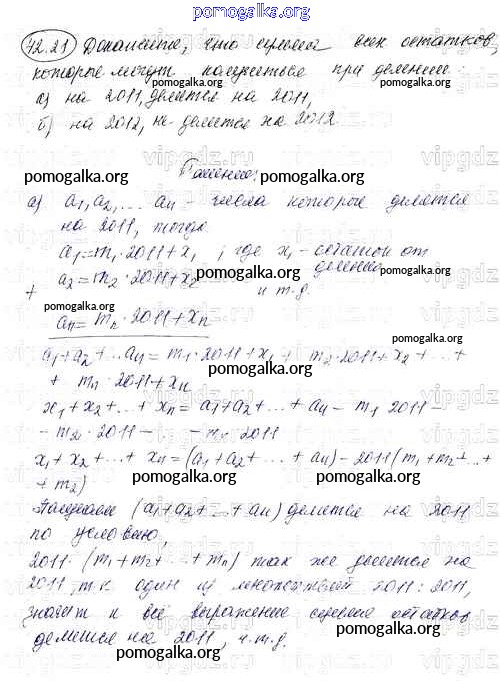 pomogalka.org
72.21 Докажите, что сумма всех остатков,
которые могут получиться при делении:
а) на 2011, делится на 2011,
б) на 2012, не делится на 2012.
Решение:
pomogalka.org pomogalka.org
а) a₁, a₂, ... aₙ - числа которые делятся
на 2011, тогда
a₁ = m₁ · 2011 + x₁ ; где x₁ - остаток от
деления
+ a₂ = m₂ · 2011 + x₂ и т.д.
pomogalka.org
aₙ = mₙ · 2011 + xₙ
pomogalka.org
a₁ + a₂ + ... aₙ = m₁ · 2011 + x₁ + m₂ · 2011 + x₂ + ... +
+ mₙ · 2011 + xₙ
pomogalka.org
x₁ + x₂ + ... + xₙ = a₁ + a₂ + ... + aₙ - m₁ 2011 -
- m₂ · 2011 - ... - mₙ · 2011
x₁ + x₂ + ... + xₙ = (a₁ + a₂ + ... + aₙ) - 2011 (m₁ + m₂ + ... +
+ m₂)
pomogalka.org pomogalka.org
(a₁ + a₂ + ... + aₙ) делится на 2011
по условию,
2011 · (m₁ + m₂ + ... + mₙ) так же делится на
2011, т.к один из множителей 2011 : 2011,
значит и всё выражение сумма остатков
делится на 2011, ч.т.д.
pomogalka.org
pomogalka.org pomogalka.org